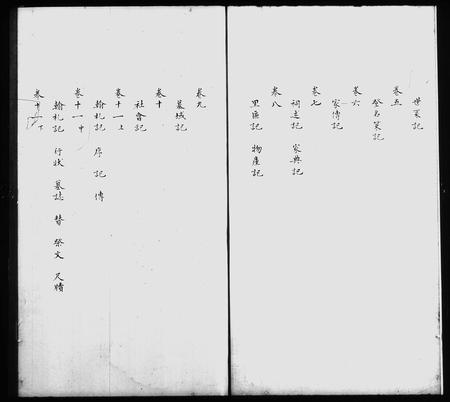 世系記
卷五
登名策記
卷六
家傳記
卷七
祠道記 家典記
卷八
里區記 物產記
卷九
墓域記
卷十
社會記
卷十一上
翰札記 序 記 傳
卷十一中
翰札記 行狀 墓誌 贊 祭文 尺牘
卷十一下